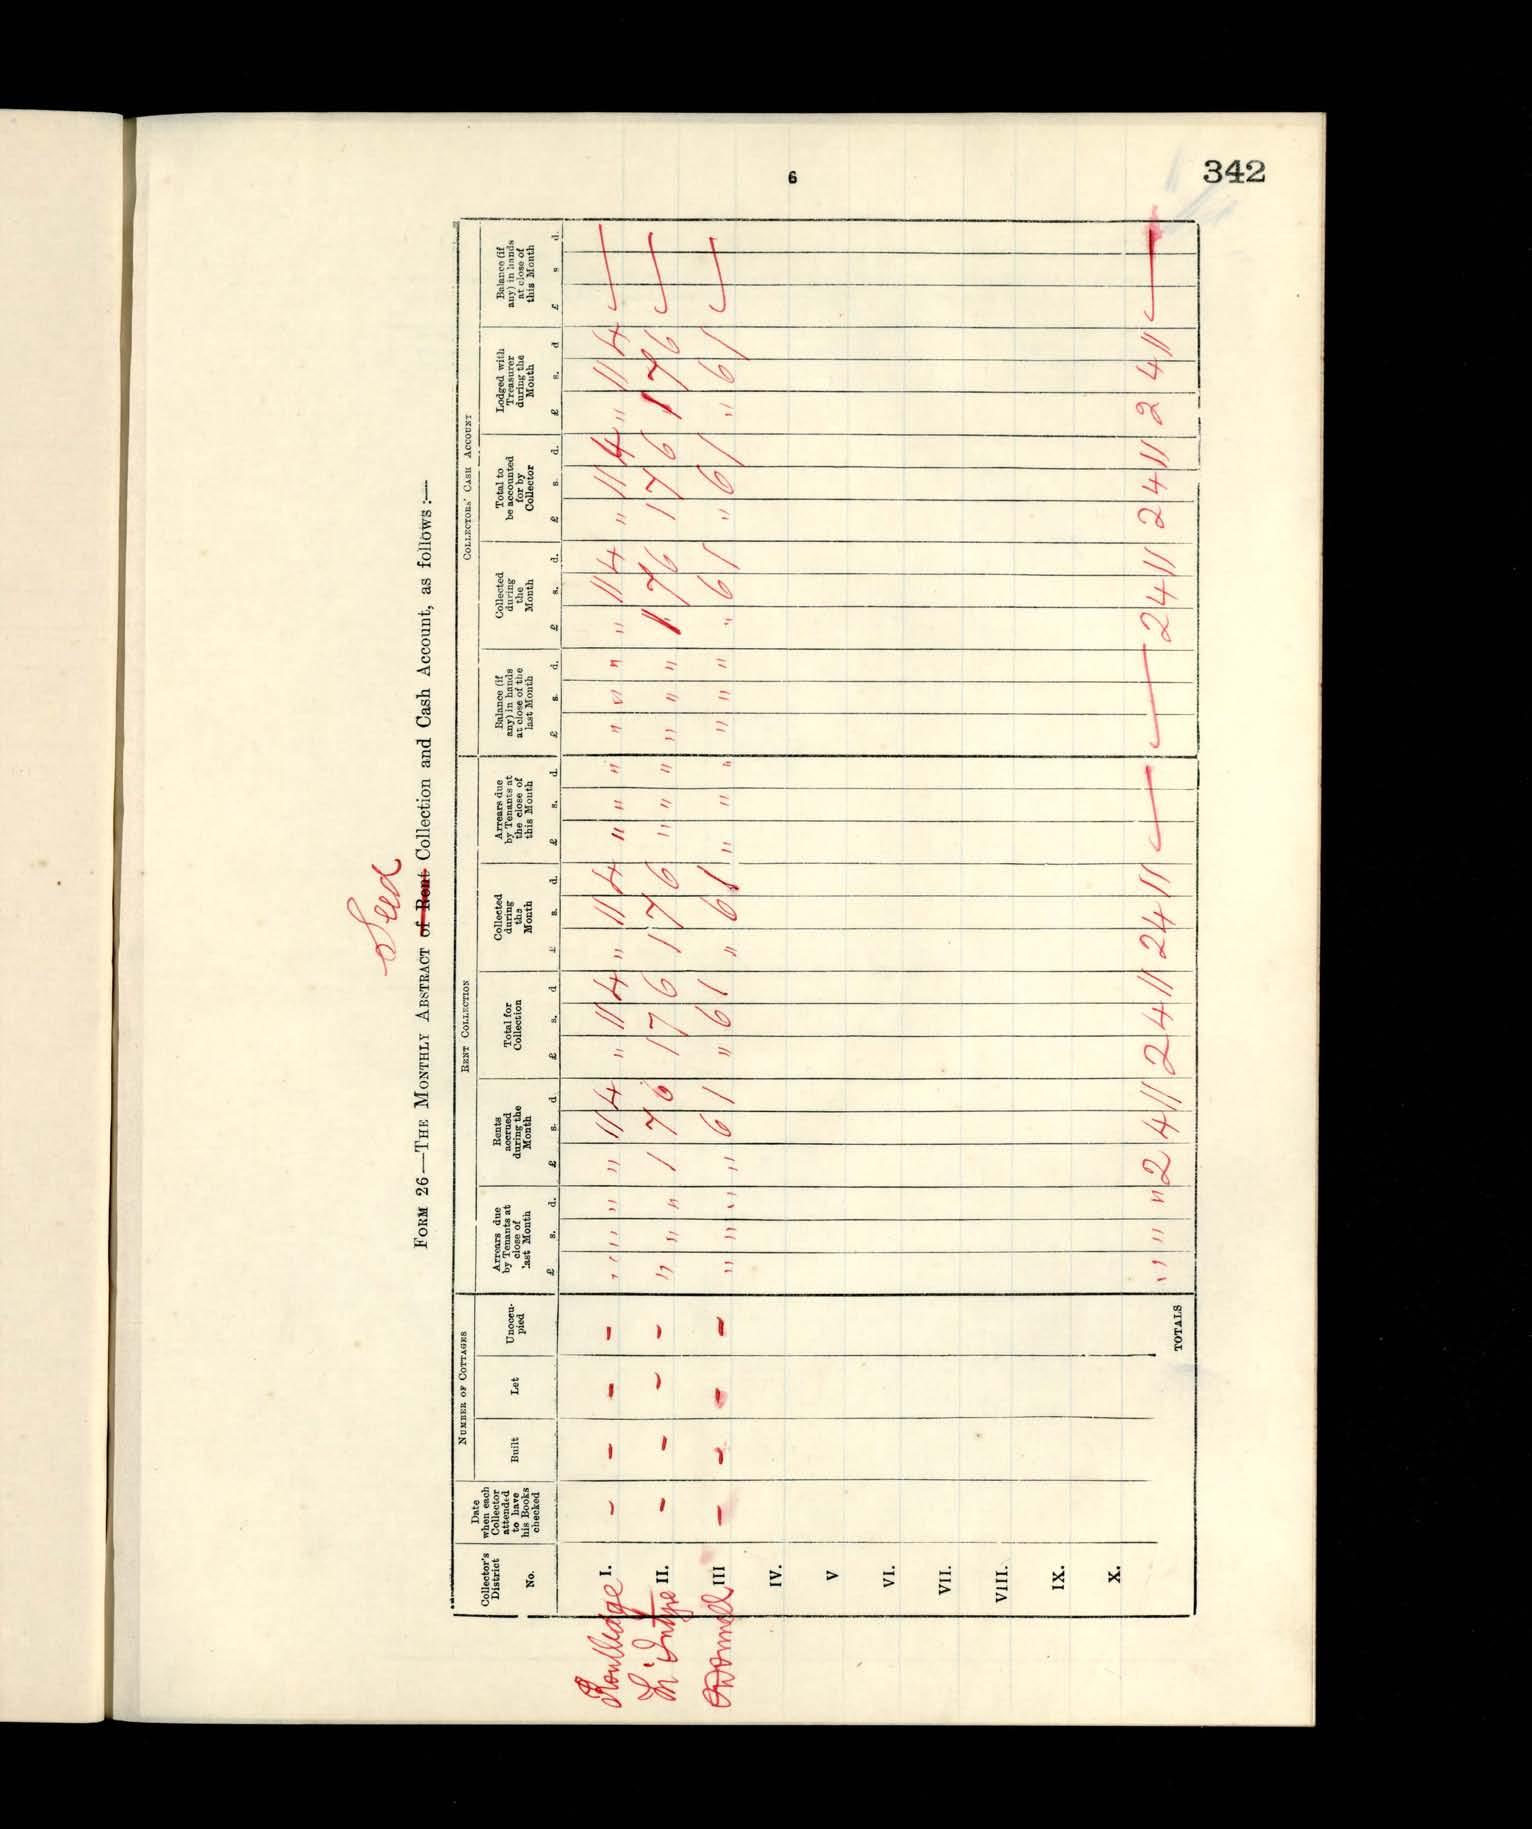 342
6
Seed
FORM 26—THE MONTHLY ABSTRACT of Rent Collection and Cash Account, as follows :—
Collector's District No.
Date when each Collector attended to have his Books checked
NUMBER OF COTTAGES
Built
Let
Unoccupied
RENT COLLECTION
Arrears due by Tenants at close of last Month
£ s. d.
Rents accrued during the Month
£ s. d
Total for Collection
£ s. d
Collected during the Month
£ s. d.
Arrears due by Tenants at the close of this Month
£ s. d.
COLLECTORS' CASH ACCOUNT
Balance (if any) in hands at close of the last Month
£ s. d.
Collected during the Month
£ s. d.
Total to be accounted for by Collector
£ s. d.
Lodged with Treasurer during the Month
£ s. d
Balance (if any) in hands at close of this Month
£ s d.
Routledge I. - - - - " " " " 11 4 " 11 4 " 11 4 " " " " " " " 11 4 " 11 4 " 11 4 —
McIntyre II. - - - - " " " 1 7 6 1 7 6 1 7 6 " " " " " " 1 7 6 1 7 6 1 7 6 —
O'Donnell III - - - - " " " " 6 1 " 6 1 " 6 1 " " " " " " " 6 1 " 6 1 " 6 1 —
IV.
V
VI.
VII.
VIII.
IX.
X.
TOTALS " " " 2 4 11 2 4 11 2 4 11 — — 2 4 11 2 4 11 2 4 11 —